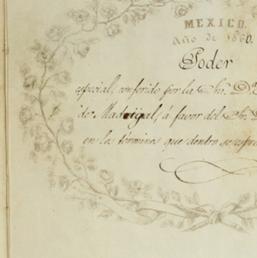 MEXICO.
Año de 1860.
Poder
especial, conferido por la Sra. D.ª
de Madrigal, á favor del Sr. D.
en los términos que dentro se espre